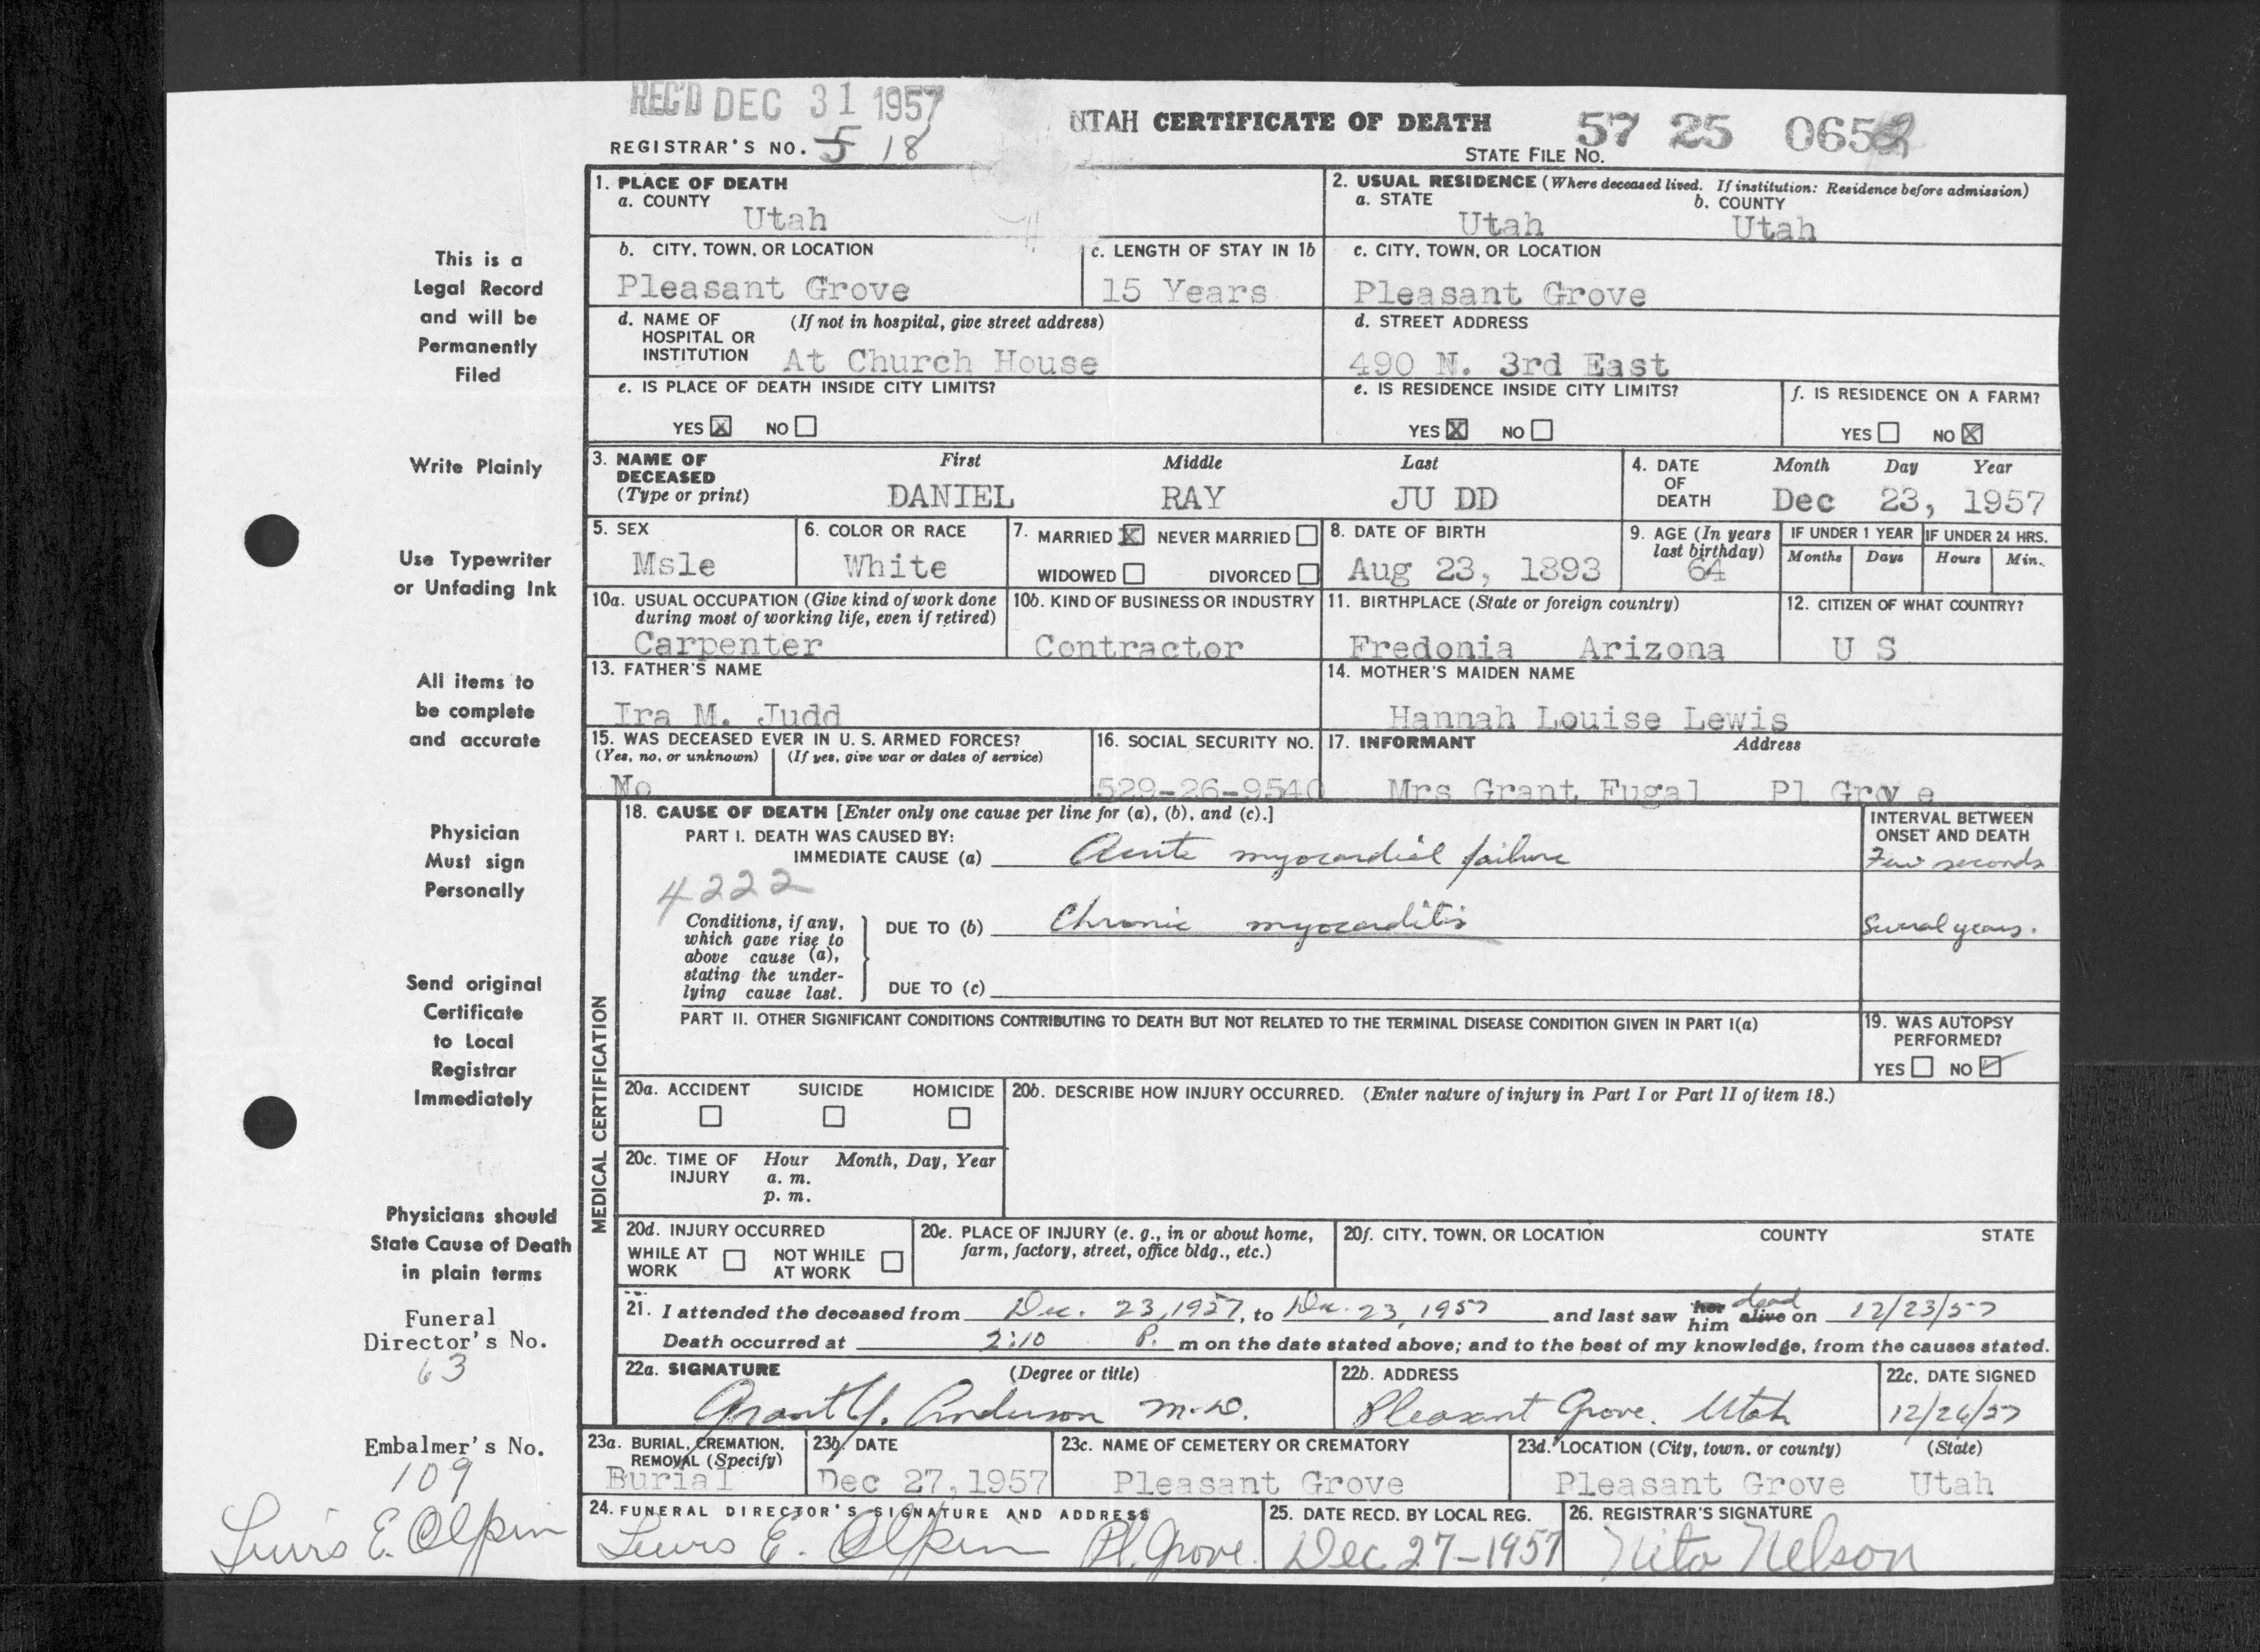 REC'D DEC 31 1957
UTAH CERTIFICATE OF DEATH
57 25
REGISTRAR'S NO. 5 18
STATE FILE NO.
1. PLACE OF DEATH
a. COUNTY
Utah
2. USUAL RESIDENCE (Where deceased lived. If institution: Residence before admission)
a. STATE b. COUNTY
Utah Utah
b. CITY, TOWN, OR LOCATION
Pleasant Grove
c. LENGTH OF STAY IN 1b
15 Years
c. CITY, TOWN, OR LOCATION
Pleasant Grove
d. NAME OF (If not in hospital, give street address)
HOSPITAL OR
INSTITUTION At Church House
d. STREET ADDRESS
490 N. 3rd East
e. IS PLACE OF DEATH INSIDE CITY LIMITS?
YES X NO
e. IS RESIDENCE INSIDE CITY LIMITS?
YES X NO
f. IS RESIDENCE ON A FARM?
YES NO X
3. NAME OF First Middle Last
DECEASED
(Type or print) DANIEL RAY JU DD
4. DATE Month Day Year
OF
DEATH Dec 23, 1957
5. SEX
Msle
6. COLOR OR RACE
White
7. MARRIED X NEVER MARRIED
WIDOWED DIVORCED
8. DATE OF BIRTH
Aug 23, 1893
9. AGE (In years
last birthday)
64
IF UNDER 1 YEAR IF UNDER 24 HRS.
Months Days Hours Min.
10a. USUAL OCCUPATION (Give kind of work done
during most of working life, even if retired)
Carpenter
10b. KIND OF BUSINESS OR INDUSTRY
Contractor
11. BIRTHPLACE (State or foreign country)
Fredonia Arizona
12. CITIZEN OF WHAT COUNTRY?
U S
13. FATHER'S NAME
Ira M. Judd
14. MOTHER'S MAIDEN NAME
Hannah Louise Lewis
15. WAS DECEASED EVER IN U. S. ARMED FORCES?
(Yes, no, or unknown) (If yes, give war or dates of service)
No
16. SOCIAL SECURITY NO.
529-26-9540
17. INFORMANT Address
Mrs Grant Fugal Pl Grov e
MEDICAL CERTIFICATION
18. CAUSE OF DEATH [Enter only one cause per line for (a), (b), and (c).]
INTERVAL BETWEEN
ONSET AND DEATH
PART I. DEATH WAS CAUSED BY:
IMMEDIATE CAUSE (a) Acute myocardial failure Few seconds
4222
Conditions, if any,
which gave rise to
above cause (a),
stating the under-
lying cause last.
DUE TO (b) Chronic myocarditis Several years.
DUE TO (c)
PART II. OTHER SIGNIFICANT CONDITIONS CONTRIBUTING TO DEATH BUT NOT RELATED TO THE TERMINAL DISEASE CONDITION GIVEN IN PART I(a)
19. WAS AUTOPSY
PERFORMED?
YES NO
20a. ACCIDENT SUICIDE HOMICIDE
20b. DESCRIBE HOW INJURY OCCURRED. (Enter nature of injury in Part I or Part II of item 18.)
20c. TIME OF Hour Month, Day, Year
INJURY a. m.
p. m.
20d. INJURY OCCURRED
WHILE AT NOT WHILE
WORK AT WORK
20e. PLACE OF INJURY (e. g., in or about home,
farm, factory, street, office bldg., etc.)
20f. CITY, TOWN, OR LOCATION COUNTY STATE
21. I attended the deceased from Dec. 23, 1957, to Dec. 23, 1957 and last saw her him alive dead on 12/23/57
Death occurred at 2:10 P. m on the date stated above; and to the best of my knowledge, from the causes stated.
22a. SIGNATURE (Degree or title)
Grant Y. Anderson M.D.
22b. ADDRESS
Pleasant Grove, Utah
22c. DATE SIGNED
12/26/57
23a. BURIAL, CREMATION,
REMOVAL (Specify)
Burial
23b. DATE
Dec 27, 1957
23c. NAME OF CEMETERY OR CREMATORY
Pleasant Grove
23d. LOCATION (City, town, or county) (State)
Pleasant Grove Utah
24. FUNERAL DIRECTOR'S SIGNATURE AND ADDRESS
Lewis E. Olpin Pl. Grove.
25. DATE RECD. BY LOCAL REG.
Dec 27-1957
26. REGISTRAR'S SIGNATURE
Nita Nelson
This is a
Legal Record
and will be
Permanently
Filed
Write Plainly
Use Typewriter
or Unfading Ink
All items to
be complete
and accurate
Physician
Must sign
Personally
Send original
Certificate
to Local
Registrar
Immediately
Physicians should
State Cause of Death
in plain terms
Funeral
Director's No.
63
Embalmer's No.
109
Lewis E. Olpin